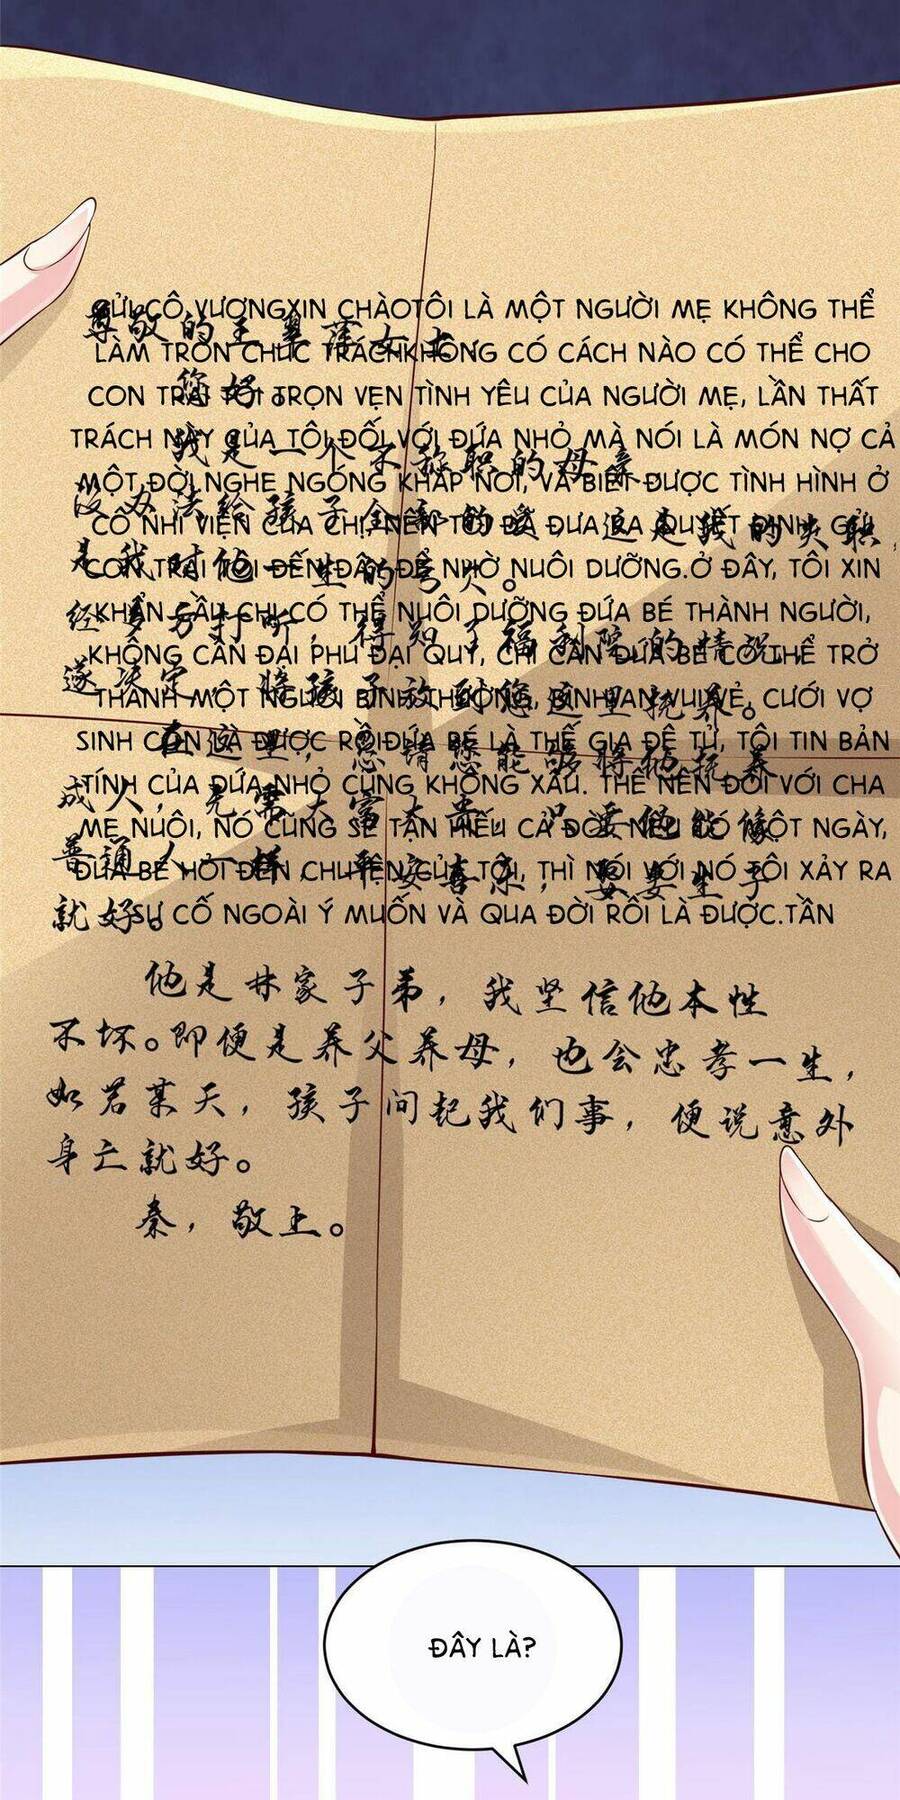 GỬI CÔ VƯƠNGXIN CHÀOTÔI LÀ MỘT NGƯỜI MẸ KHÔNG THỂ
LÀM TRÒN CHỨC TRÁCHKHÔNG CÓ CÁCH NÀO CÓ THỂ CHO
CON TRAI TÔI TRỌN VẸN TÌNH YÊU CỦA NGƯỜI MẸ, LẦN THẤT
TRÁCH NÀY CỦA TÔI ĐỐI VỚI ĐỨA NHỎ MÀ NÓI LÀ MÓN NỢ CẢ
MỘT ĐỜI.NGHE NGÓNG KHẮP NƠI, VÀ BIẾT ĐƯỢC TÌNH HÌNH Ở
CÔ NHI VIỆN CỦA CHỊ, NÊN TÔI ĐÃ ĐƯA RA QUYẾT ĐỊNH GỬI
CON TRAI TÔI ĐẾN ĐÂY ĐỂ NHỜ NUÔI DƯỠNG.Ở ĐÂY, TÔI XIN
KHẨN CẦU CHỊ CÓ THỂ NUÔI DƯỠNG ĐỨA BÉ THÀNH NGƯỜI,
KHÔNG CẦN ĐẠI PHÚ ĐẠI QUÝ, CHỈ CẦN ĐỨA BÉ CÓ THỂ TRỞ
THÀNH MỘT NGƯỜI BÌNH THƯỜNG, BÌNH AN VUI VẺ, CƯỚI VỢ
SINH CON LÀ ĐƯỢC RỒI.ĐỨA BÉ LÀ THẾ GIA ĐỆ TỬ, TÔI TIN BẢN
TÍNH CỦA ĐỨA NHỎ CŨNG KHÔNG XẤU. THẾ NÊN ĐỐI VỚI CHA
MẸ NUÔI, NÓ CŨNG SẼ TẬN HIẾU CẢ ĐỜI. NẾU CÓ MỘT NGÀY,
ĐỨA BÉ HỎI ĐẾN CHUYỆN CỦA TÔI, THÌ NÓI VỚI NÓ TÔI XẢY RA
SỰ CỐ NGOÀI Ý MUỐN VÀ QUA ĐỜI RỒI LÀ ĐƯỢC.TẦN
您好。
我是一个不称职的母亲
没办法给孩子全部的爱，这是我的失职，
是我对他一生的亏欠。
经多方打听，得知了福利院的情况，
遂决定，将孩子放到您这里抚养。
在这里，恳请您能够将他抚养
成人，无需大富大贵，只要他能像
普通人一样，平安喜乐，娶妻生子
就好。
他是林家子弟，我坚信他本性
不坏。即便是养父养母，也会忠孝一生，
如若某天，孩子问起我们事，便说意外
身亡就好。
秦，敬上。
ĐÂY LÀ?